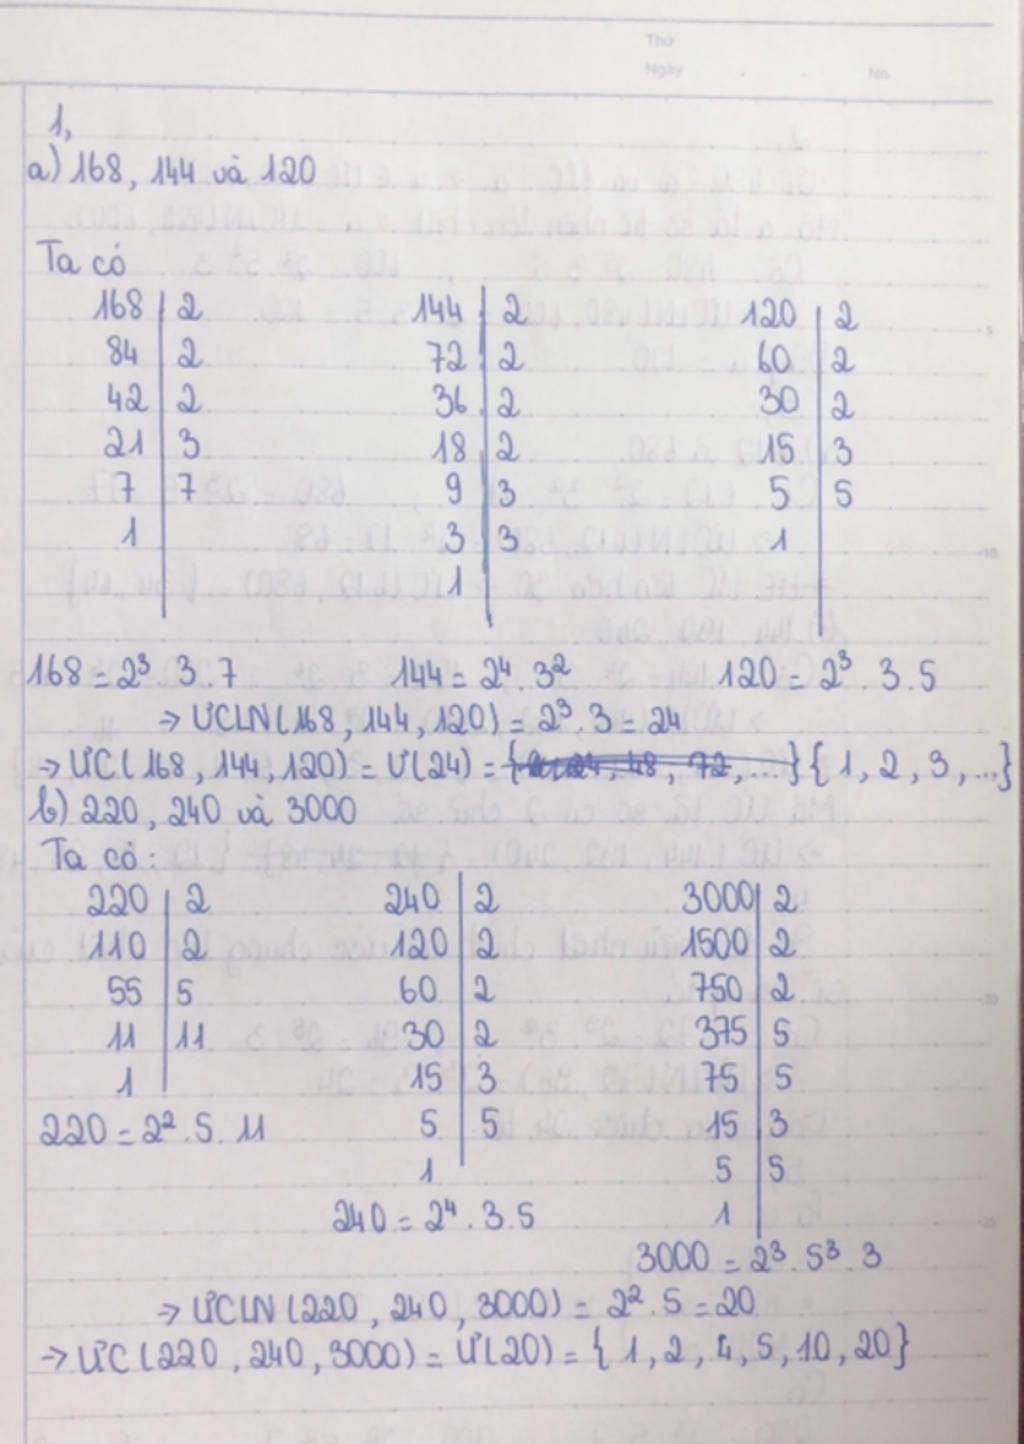 Thứ
Ngày . . No.
1,
a) 168, 144 và 120
Ta có
168 | 2 144 | 2 120 | 2
84 | 2 72 | 2 60 | 2
42 | 2 36 | 2 30 | 2
21 | 3 18 | 2 15 | 3
7 | 7 9 | 3 5 | 5
1 3 | 3 1
1
168 = 2³ . 3 . 7 144 = 2⁴ . 3² 120 = 2³ . 3 . 5
→ ƯCLN(168, 144, 120) = 2³ . 3 = 24
→ ƯC(168, 144, 120) = Ư(24) = {24, 48, 72, ...} {1, 2, 3, ...}
b) 220, 240 và 3000
Ta có :
220 | 2 240 | 2 3000 | 2
110 | 2 120 | 2 1500 | 2
55 | 5 60 | 2 750 | 2
11 | 11 30 | 2 375 | 5
1 15 | 3 75 | 5
220 = 2² . 5 . 11 5 | 5 15 | 3
1 5 | 5
240 = 2⁴ . 3 . 5 1
3000 = 2³ . 5³ . 3
→ ƯCLN (220, 240, 3000) = 2² . 5 = 20
→ ƯC (220, 240, 3000) = Ư(20) = {1, 2, 4, 5, 10, 20}